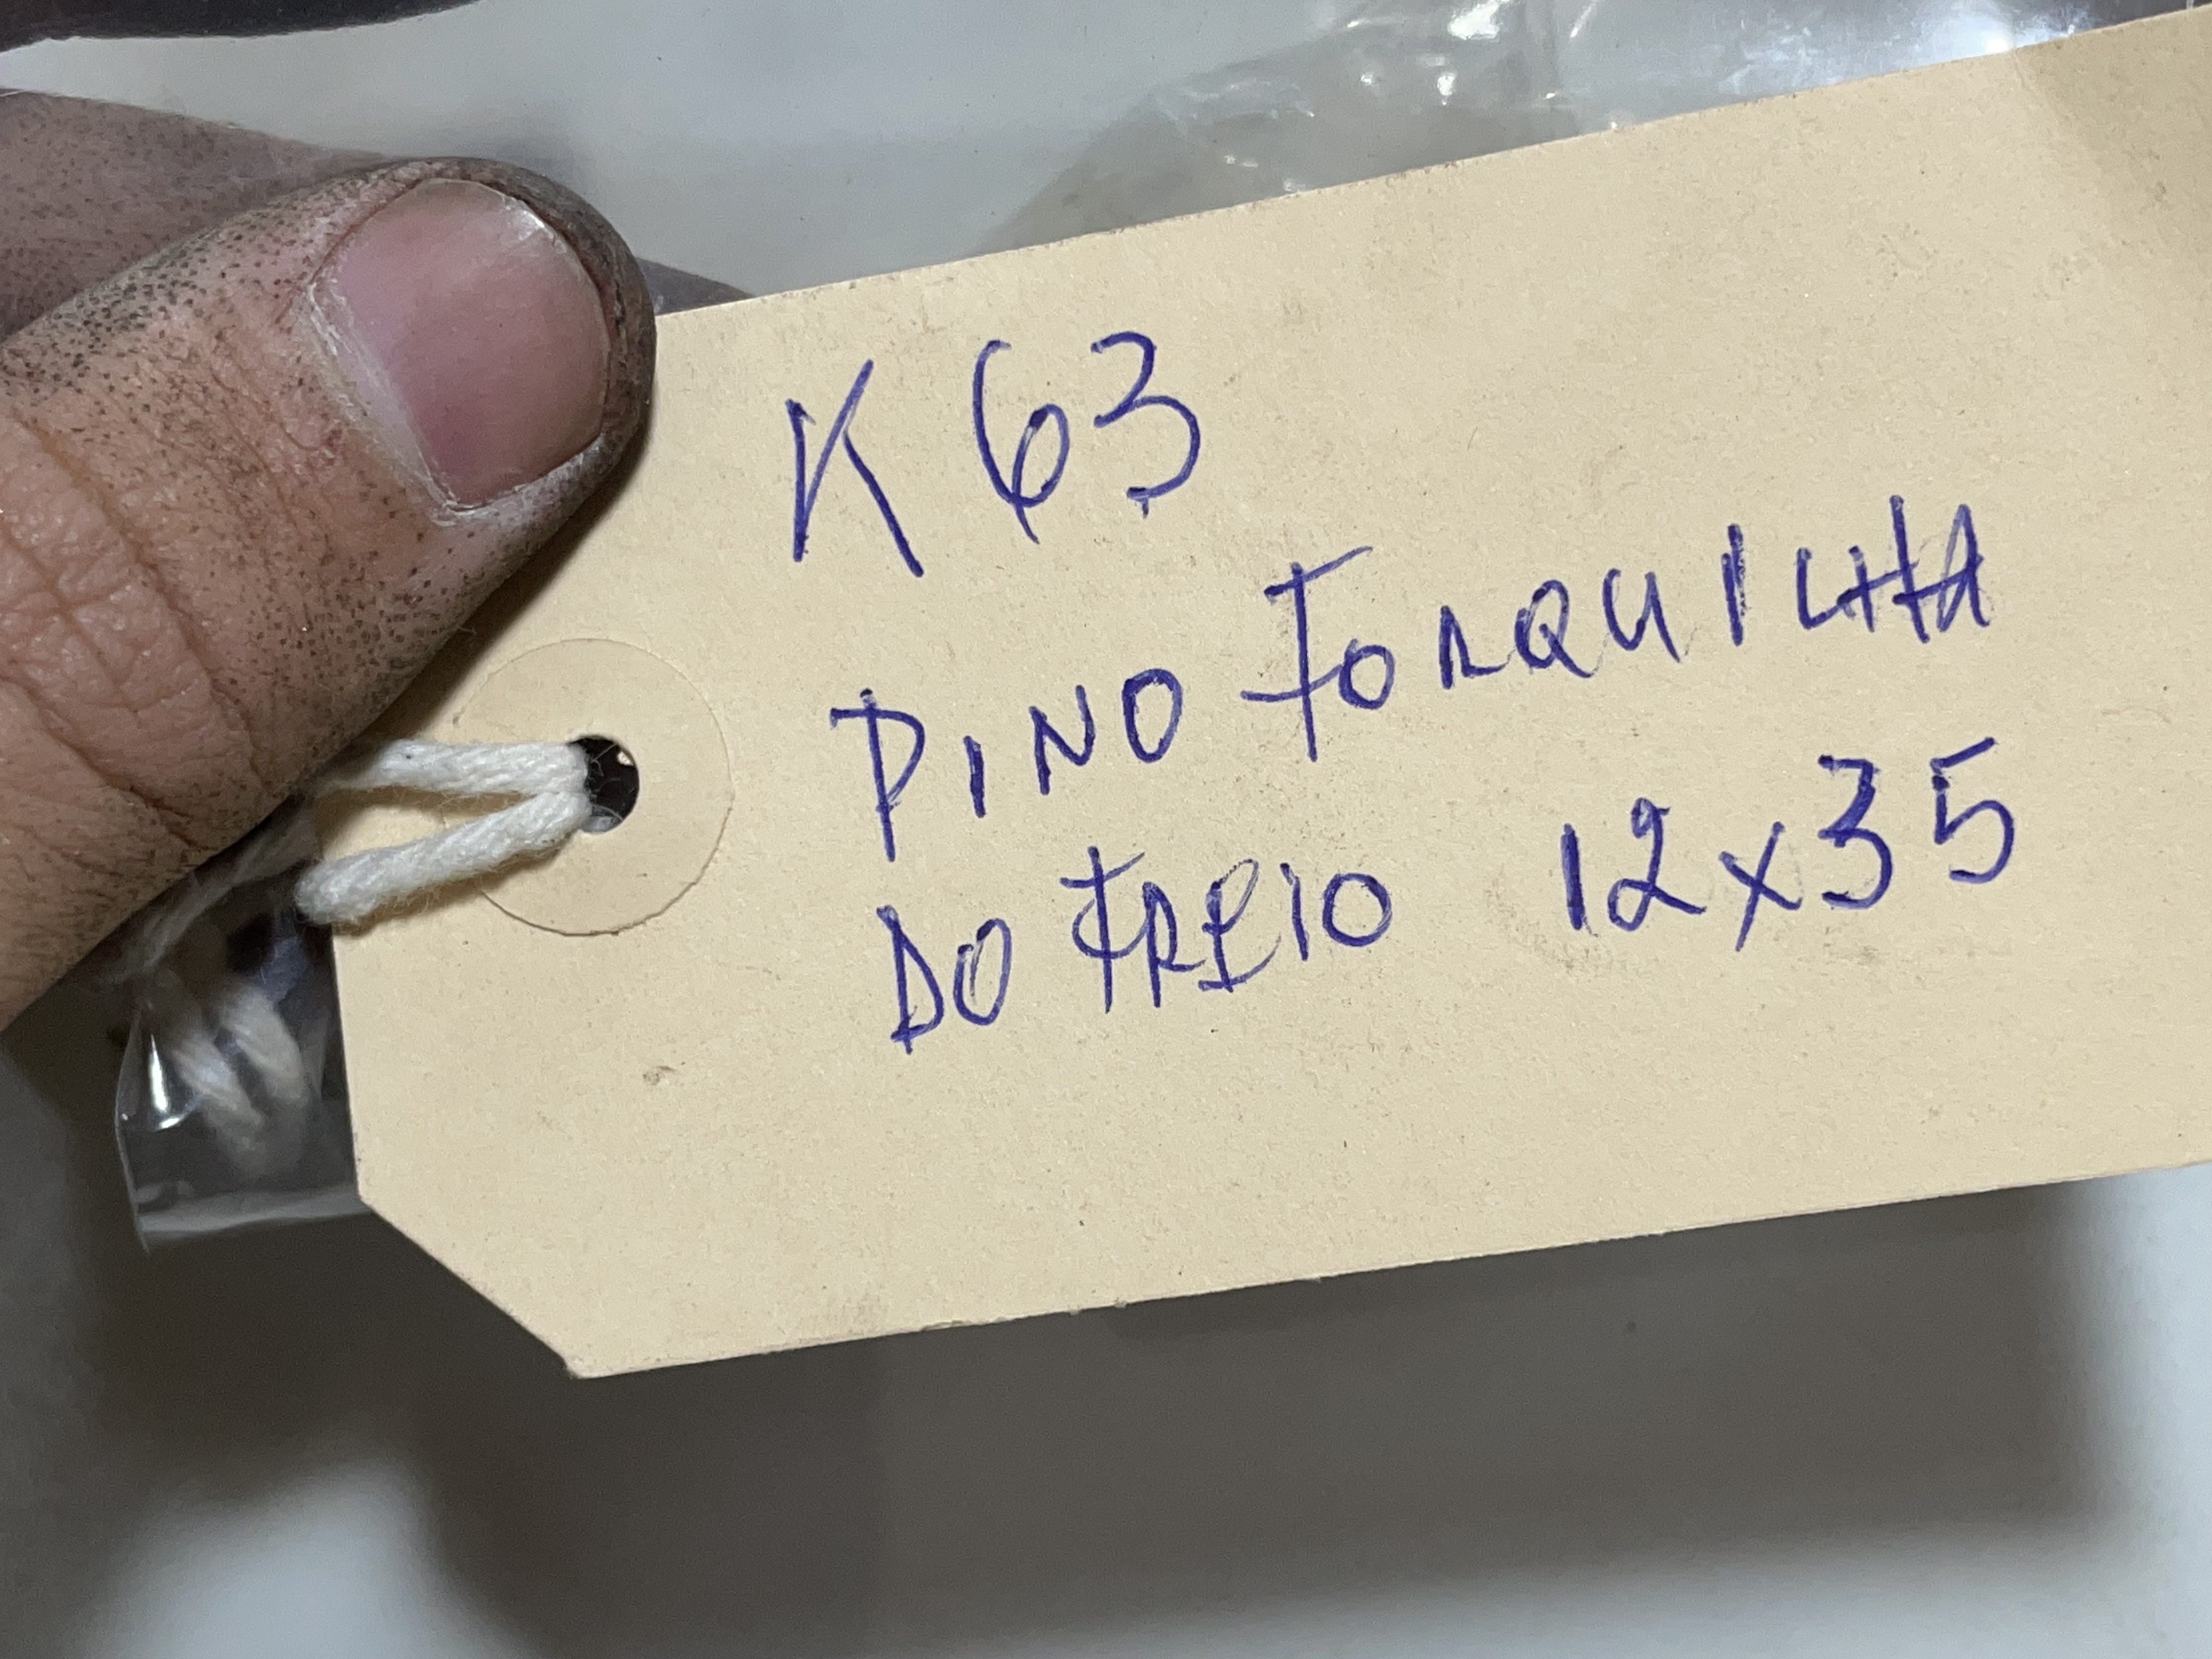 K 63
PINO FORQUILHA
DO FREIO 12x35